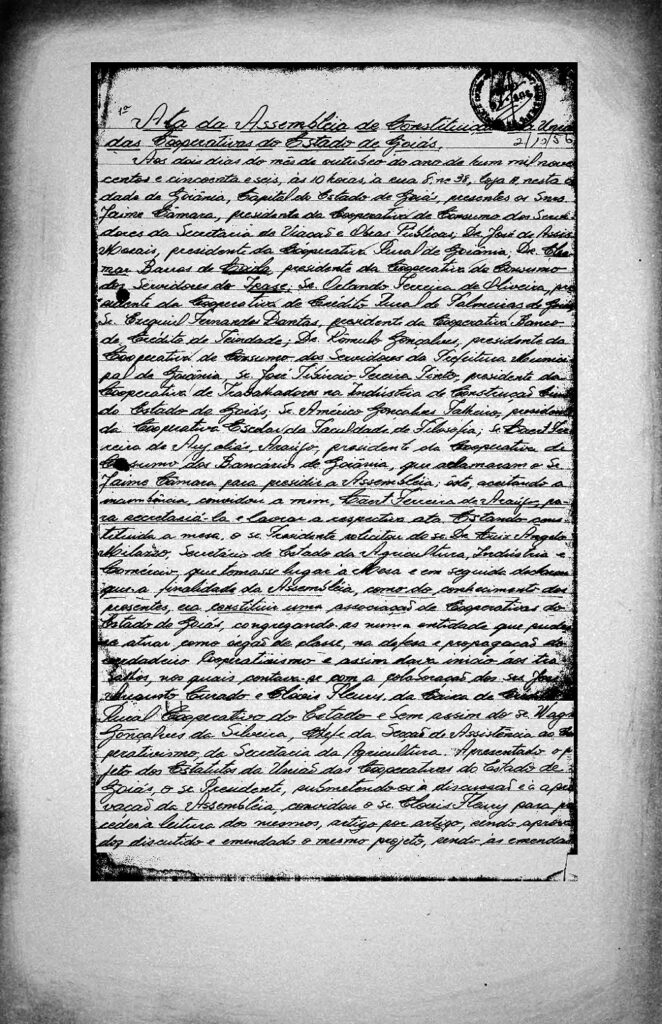 1º
Ata da Assembléia de Constituição da União
das Cooperativas do Estado de Goiás. 2/10/56
Aos dois dias do mês de outubro do ano de hum mil nove
centos e cincoenta e seis, às 10 horas, à rua 8, nº 38, loja 11, nesta ci
dade de Goiânia, Capital do Estado de Goiás, presentes os Snrs
Jaime Câmara, presidente da Cooperativa de Consumo dos Servi
dores da Secretaria de Viação e Obras Públicas, Dr. José de Assis
Morais, presidente da Cooperativa Rural de Goiânia, Dr.
Barros de, presidente da Cooperativa de Consumo
dos Servidores do Ipase; Sr. Orlando Ferreira de Oliveira, pre
sidente da Cooperativa de Crédito Rural de Palmeiras de Goiás
Sr. Ezequiel Fernandes Dantas, presidente da Cooperativa Banco
de Crédito de Trindade; Dr. Rômulo Gonçalves, presidente da
Cooperativa de Consumo dos Servidores da Prefeitura Munici
pal de Goiânia, sr. José Tibúrcio Pereira Pinto, presidente da
Cooperativa de Trabalhadores na Indústria de Construção Civil
do Estado de Goiás; Sr. Américo Gonçalves Talheiro, presidente
da Cooperativa Escolar da Faculdade de Filosofia; Sr. Fer
reira de Araújo, presidente da Cooperativa de
Consumo dos Bancários de Goiânia, que aclamaram o Sr.
Jaime Câmara para presidir a Assembléia; este, aceitando a
incumbência, convidou a mim, Ferreira de Araújo, pa
ra secretariá-la e lavrar a respectiva ata. Estando cons
tituida a mesa, o sr. Presidente solicitou do sr. Dr. Luiz Angelo
Milazzo, Secretário de Estado da Agricultura, Indústria e
Comércio, que tomasse lugar à Mesa e em seguida declarou
que a finalidade da Assembléia, como do conhecimento dos
presentes, era constituir uma associação de Cooperativas do
Estado de Goiás, congregando-as numa entidade que pudes
se atuar, como órgão de classe, na defesa e propagação do
verdadeiro Cooperativismo e assim dava início aos tra
balhos, nos quais contava-se com a colaboração dos srs. José
Augusto Curado e Clóvis Fleury, da Caixa de Crédito
Rural Cooperativo do Estado e bem assim do sr. Wagner
Gonçalves da Silveira, Chefe da Secção de Assistência ao Coo
perativismo, da Secretaria da Agricultura. Apresentado o pro
jeto dos Estatutos da União das Cooperativas do Estado de
Goiás, o sr. Presidente, submetendo-os à discussão e à apro
vação da Assembléia, convidou o sr. Clóvis Fleury para pro
ceder à leitura dos mesmos, artigo por artigo, sendo aprova
dos discutido e emendado o mesmo projeto, sendo as emendas